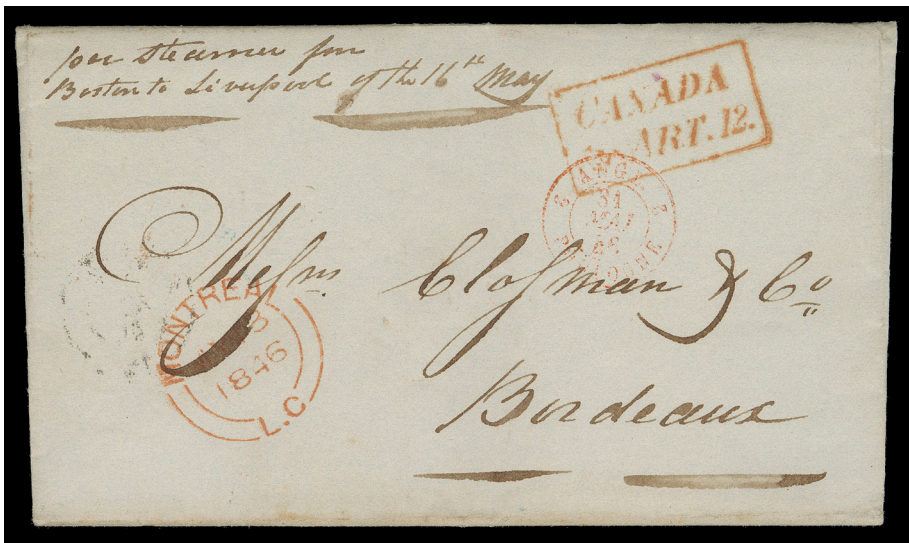 per Steamer from
Boston to Liverpool of the 16th May
CANADA
ART. 12.
ANGL.
31
MAI
46
BOULOGNE
Messrs Closman & Co
MONTREAL
8
1846
L.C
Bordeaux